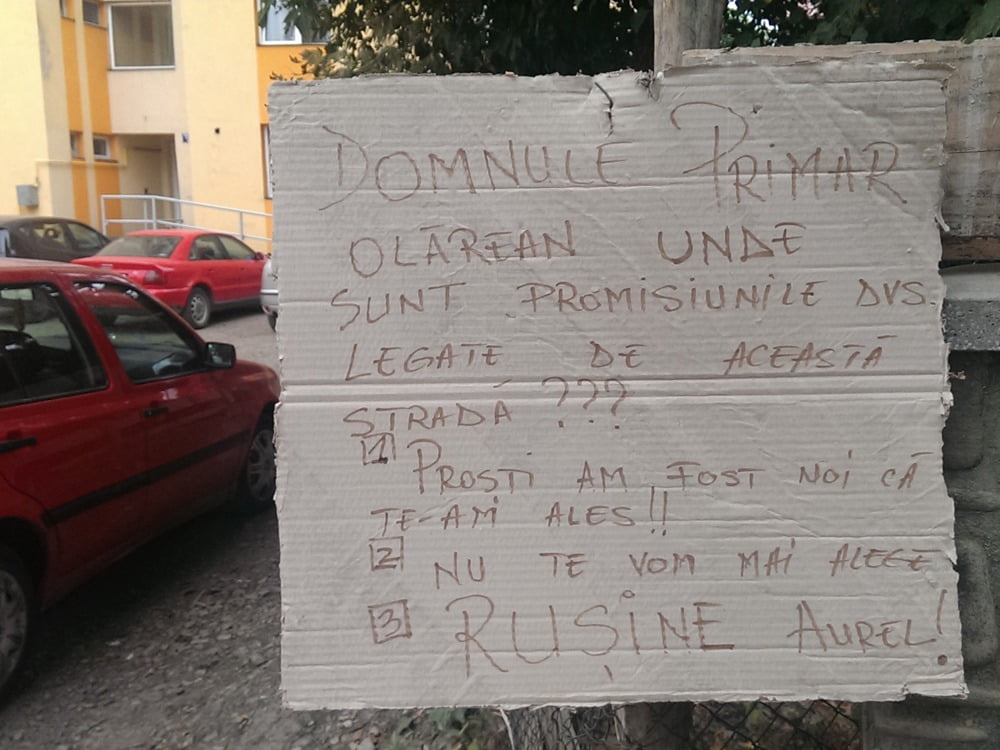 DOMNULE PRIMAR
OLĂREAN UNDE
SUNT PROMISIUNILE DVS.
LEGATE DE ACEASTĂ
STRADĂ ???
1 PROSTI AM FOST NOI CĂ
TE-AM ALES!!
2 NU TE VOM MAI ALEGE
3 RUȘINE AUREL!